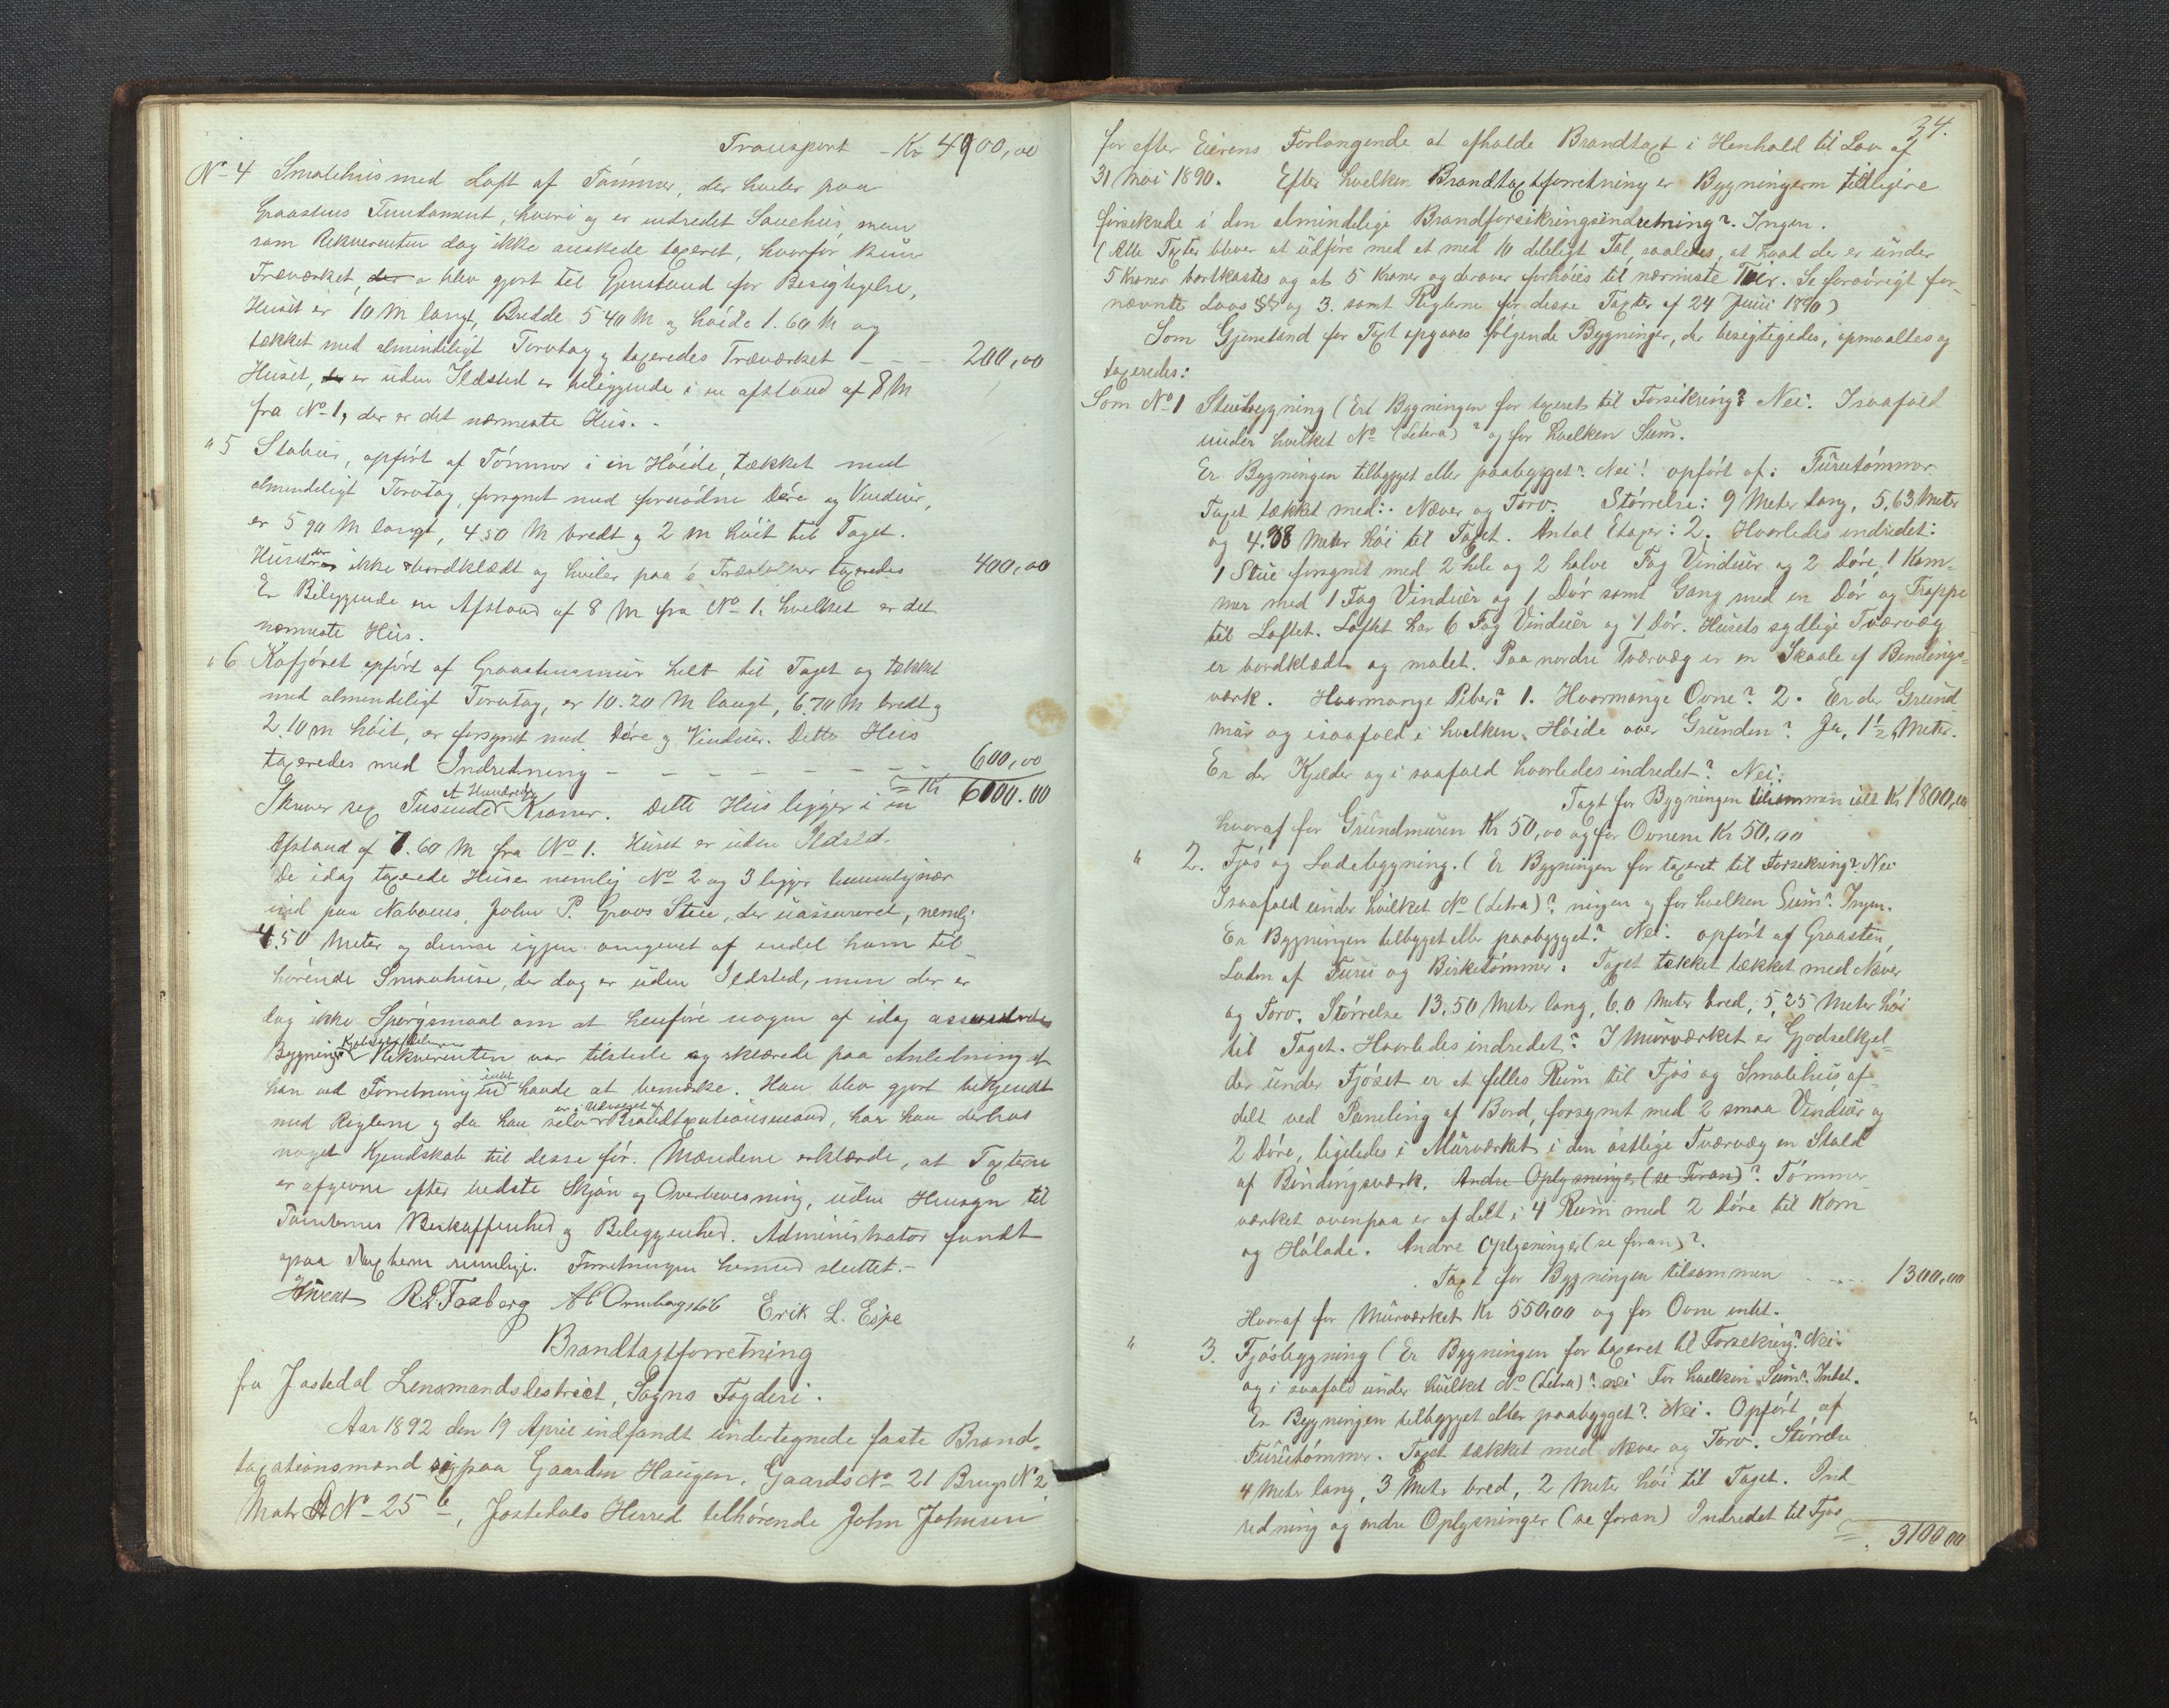 Transport - Kr 4900,00
No 4 Smalehus med Loft af Tømmer, der hviler paa
Graastens Fundament, hvori og er indredet Sauehus, men
som Rekvirenten dog ikke ønskede taxeret, hvorfor kun
Træværket, der blev gjort til Gjenstand for Besigtigelse,
Huset er 10 M langt, Bredde 5 40 M og høide 1.60 M og
tækket med almindeligt Torvtag og taxeredes Træværket - - - 200,00
Huset, er uden Ildsted er beliggende i en afstand af 8 M
fra No 1, der er det nærmeste Hus. -
" 5 Stabur, opført af Tømmer i en Høide, tækket med
almindeligt Torvtag, forsynet med fornødne Døre og Vinduer,
er 5 90 M langt, 4 50 M bredt og 2 M høit til Taget.
Huset der er ikke bordklædt og hviler paa 6 Træstolper taxeredes 400,00
Er Beliggende en Afstand af 8 M fra No 1, hvilket er det
nærmeste Hus.
" 6 Kofjøset opført af Graastensmur helt til Taget og tækket
med almindeligt Torvtag, er 10.20 M langt, 6.70 M bredt og
2.10 M høit, er forsynet med Døre og Vinduer. Dette Hus
taxeredes med Indredning - - - - - - - 600,00
= Kr 6100.00
Skriver sex Tusinde et Hundrede Kroner. Dette Hus ligger i en
Afstand af 7.60 M fra No 1. Huset er uden Ildsted.
De idag taxerede Huse nemlig No 2 og 3 ligger temmelig nær
ind paa Naboens, John P. Groos Stue, der uassureret, nemlig
4.50 Meter og denne igjen omgivet af endel ham til
hørende Smaahuse, der dog er uden Ildsted, men der er
dog ikke Spørgsmaal om at henføre nogen af idag assurerede
Bygninger Rekvirenten var tilstede og erklærede paa Anledning at
han ved Forretningen intet havde at bemærke. Han blev gjort bekjendt
med Reglerne og da han selv er i Udvalget af Brandtaxationsmænd, har han derhos
noget Kjendskab til desse før. Mændene erklærde, at Taxterne
er afgivne efter bedste Skjøn og Overbevisning, uden Hensyn til
Tomternes Beskaffenhed og Beliggenhed. Administrator fandt
ogsaa Taxterne rimelige. Forretningen hermed sluttet. -
R. L. Faaberg Erik L. Espe
Brandtaxtforretning
fra Jostedal Lensmandsdistrict, Sogns Fogderi.
Aar 1892 den 19 April indfandt undertegnede faste Brand-
taxationsmænd sig paa Gaarden Haugen, Gaards No 21 Brugs No 2
Matr No 25 b, Jostedals Herred tilhørende John Johnsen
34.
for efter Eierens Forlangende at afholde Brandtaxt i Henhold til Lov af
31 Mai 1890. Efter hvilken Brandtaxtforretning er Bygningerne tidligere
forsikrede i den almindelige Brandforsikringsindretning? Ingen.
(Alle Taxter bliver at udføre med et med 10 deleligt Tal, saaledes, at hvad der er under
5 Kroner bortkastes og at 5 Kroner og derover forhøies til nærmeste Tier. Se forøvrigt for-
nævnte Lovs §2 og 3. samt Reglerne for disse Taxter af 24 Juni 1890)
Som Gjenstand for Taxt opgaves følgende Bygninger, der besigtigedes, opmaaltes og
taxeredes:
Som No 1 Stuebygning (Er Bygningen før taxeret til Forsikring? Nei. Isaafald
under hvilket No (Litera)? og for hvilken Sum.
Er Bygningen tilbygget eller paabygget? Nei! opført af: Furutømmer
Taget tækket med: Næver og Torv. Størrelse: 9 Meter lang, 5,63 Meter
og 4.38 Meter høi til Taget. Antal Etager: 2. Hvorledes indredet:
1 Stue forsynet med 2 hele og 2 halve Fag Vinduer og 2 Døre, 1 Kam-
mer med 1 Fag Vinduer og 1 Dør samt Gang med en Dør og Trappe
til Loftet. Loftet har 6 Fag Vinduer og 1 Dør. Husets sydlige Tværvæg
er bordklædt og malet. Paa nordre Tværvæg er en Skaale af Bindings-
værk. Hvormange Piber? 1. Hvormange Ovne? 2. Er der Grund
mur og isaafald i hvilken Høide over Grunden? Ja, 1 1/2 Meter.
Er der Kjelder og i saafald hvorledes indredet? Nei.
Taxt for Bygningen tilsammen ialt Kr 1800,00
hvoraf for Grundmuren Kr 50,00 og for Ovnene Kr 50,00
" 2. Fjøs og Ladebygning. (Er Bygningen før taxeret til Forsekring? Nei
Isaafald under hvilket No (Litra)? ningen og for hvilken Sum? Ingen.
Er Bygningen tilbygget eller paabygget? Nei. opført af Graasten,
Laden af Furu og Birketømmer. Taget tækket tækket med Næver
og Torv. Størrelse 13.50 Meter lang, 6.0 Meter bred, 5,25 Meter høi
til Taget. Hvorledes indredet? I Murværket er Gjødselkjel-
der under Fjøset er et felles Rum til Fjøs og Smalehus, af-
delt ved Paneling af Bord, forsynt med 2 smaa Vinduer og
2 Døre, ligeledes i Murværket i den østlige Tværvæg en Stald
af Bindingsværk. Andre Oplysninger (se Foran)? Tømmer
værket ovenpaa er afdelt i 4 Rum med 2 Døre til Korn
og Hølade. Andre Oplysninger (se foran)?.
Taxt for Bygningen tilsammen - - - 1300,00
Hvoraf for Murværket Kr 550,00 og for Ovne intet.
" 3. Fjøsbygning (Er Bygningen før taxeret til Forsekring? Nei.
og i saafald under hvilket No (Litra)? nei For hvilken Sum? Intet.
Er Bygningen tilbygget eller paabygget? Nei. Opført af
Furutømmer. Taget tækket med Næver og Torv. Størrelse
4 Meter lang, 3 Meter bred, 2 Meter høi til Taget. Ind-
redning og andre Oplysninger (se foran) Indredet til Fjøs
= 3100,00